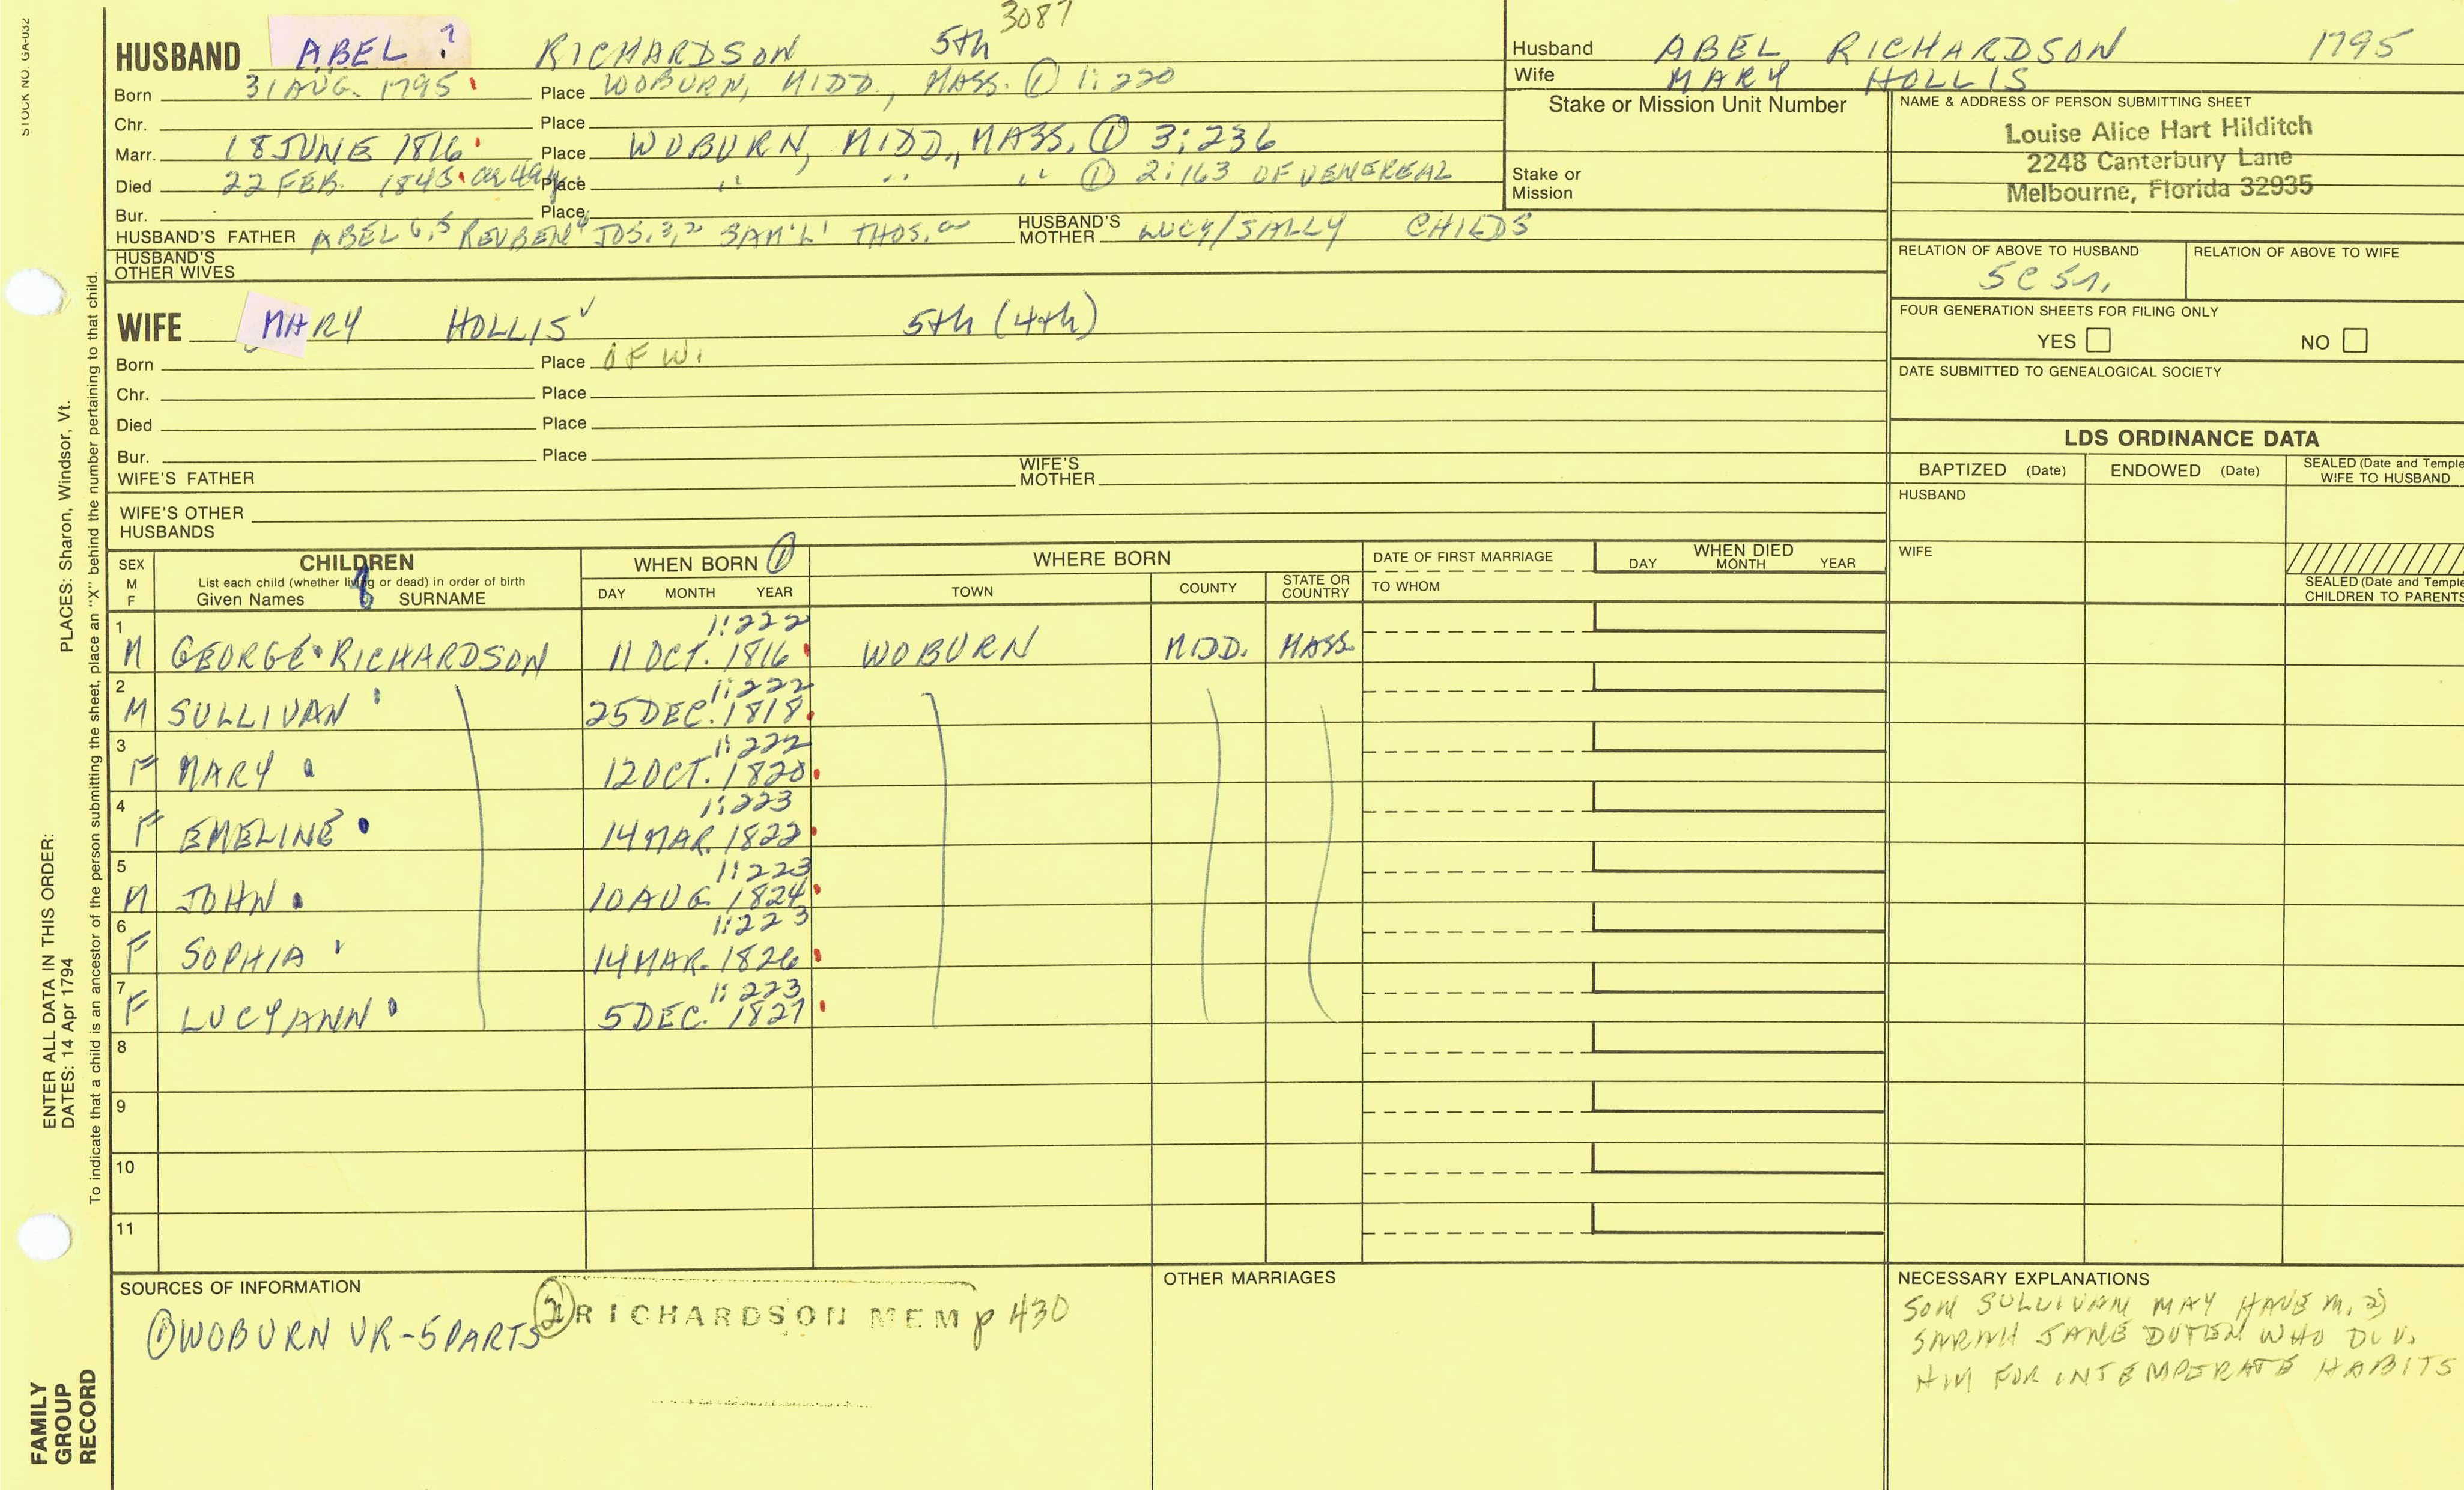 STOCK NO. GA-032
3087
HUSBAND ABEL ? RICHARDSON 5th
Born 31 AUG. 1795 Place WOBURN, MIDD., MASS. ① 1:220
Chr. Place
Marr. 18 JUNE 1816 Place WOBURN, MIDD., MASS. ① 3:236
Died 22 FEB. 1845 Place " " " ① 2:163 OF VENEREAL
Bur. Place
HUSBAND'S FATHER ABEL 6,5 REUBEN 4 JOS. 3,2 SAM'L 1 THOS. HUSBAND'S MOTHER LUCY/SALLY CHILDS
HUSBAND'S OTHER WIVES
WIFE MARY HOLLIS 5th (4th)
Born Place OF W.
Chr. Place
Died Place
Bur. Place
WIFE'S FATHER WIFE'S MOTHER
WIFE'S OTHER HUSBANDS
Husband ABEL RICHARDSON 1795
Wife MARY HOLLIS
Stake or Mission Unit Number
Stake or Mission
NAME & ADDRESS OF PERSON SUBMITTING SHEET
Louise Alice Hart Hilditch
2248 Canterbury Lane
Melbourne, Florida 32935
RELATION OF ABOVE TO HUSBAND RELATION OF ABOVE TO WIFE
FOUR GENERATION SHEETS FOR FILING ONLY
YES NO
DATE SUBMITTED TO GENEALOGICAL SOCIETY
LDS ORDINANCE DATA
BAPTIZED (Date) ENDOWED (Date) SEALED (Date and Temple WIFE TO HUSBAND
HUSBAND
WIFE
SEALED (Date and Temple
CHILDREN TO PARENTS
SEX M F
CHILDREN
List each child (whether living or dead) in order of birth
Given Names SURNAME
WHEN BORN ①
DAY MONTH YEAR
WHERE BORN
TOWN COUNTY STATE OR COUNTRY
DATE OF FIRST MARRIAGE
TO WHOM
WHEN DIED
DAY MONTH YEAR
1 1:222
M GEORGE RICHARDSON 11 OCT. 1816 WOBURN MIDD. MASS.
2 1:222
M SULLIVAN 25 DEC. 1818
3 1:222
F MARY 12 OCT. 1820
4 1:223
F EMELINE 14 MAR. 1822
5 1:223
M JOHN 10 AUG. 1824
6 1:223
F SOPHIA 14 MAR. 1826
7 1:223
F LUCY ANN 5 DEC. 1827
8
9
10
11
SOURCES OF INFORMATION
① WOBURN VR-5 PARTS ② RICHARDSON MEM p 430
OTHER MARRIAGES
NECESSARY EXPLANATIONS
SON SULLIVAN MAY HAVE M. 2)
SARAH JANE WHO DIV.
HIM FOR INTEMPERATE HABITS
ENTER ALL DATA IN THIS ORDER:
DATES: 14 Apr 1794 PLACES: Sharon, Windsor, Vt.
To indicate that a child is an ancestor of the person submitting the sheet, place an "X" behind the number pertaining to that child.
FAMILY
GROUP
RECORD